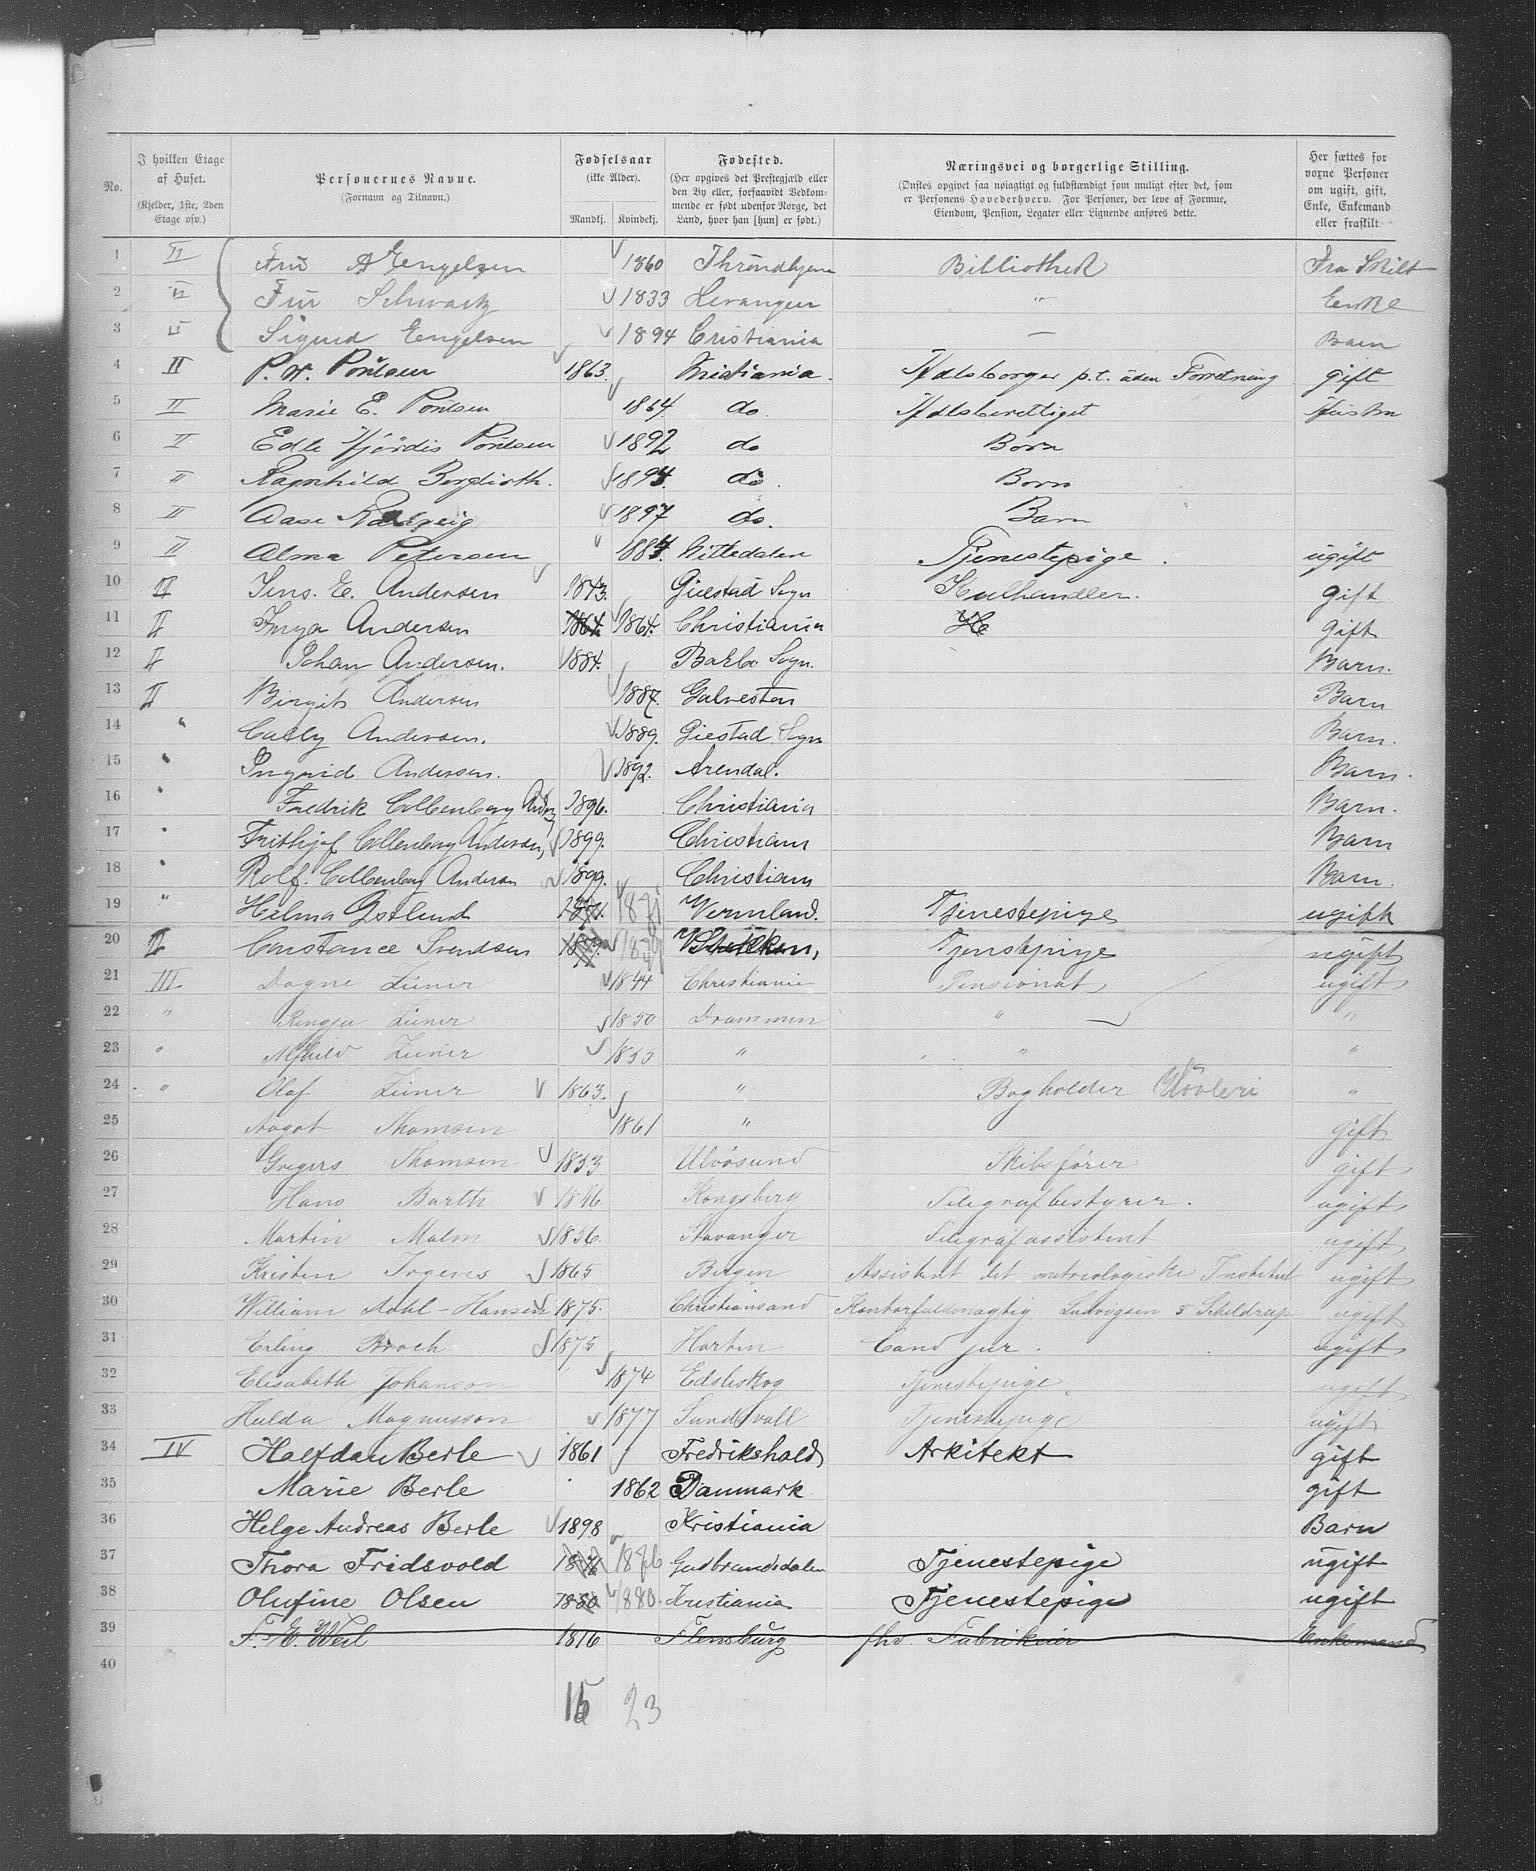 No. | I hvilken Etage af Huset. (Kjelder, 1ste, 2den Etage osv.) | Personernes Navne. (Fornavn og Tilnavn.) | Fødselsaar (ikke Alder). Mandkj. Kvindekj. | Fødested. (Her opgives det Prestegjæld eller den By eller, forsaavidt Vedkommende er født udenfor Norge, det Land, hvor han [hun] er født.) | Næringsvei og borgerlige Stilling. (Ønskes opgivet saa nøiagtigt og fuldstændigt som muligt efter det, som er Personens Hovederhverv. For Personer, der leve af Formue, Eiendom, Pension, Legater eller Lignende anføres dette. | Her sættes for voxne Personer om ugift, gift, Enke, Enkemand eller fraskilt
1 II Fru A Engelsen 1860 Throndhjem Billiothek Fra Skilt
2 II Fru Schwartz 1833 Levanger " Enke
3 II Sigrid Eengelsen 1894 Cristiania — Barn
4 II P. W. Poulsen 1863 Kristiania. Hdlsborger p.t. uden Forretning gift
5 II Marie E. Poulsen 1864 do. Hdlsberettiget Hustru
6 II Edle Hjørdis Poulsen 1892 do Børn
7 II Ragnhild Berglioth. 1894. do. Børn
8 II Aase 1897 do. Barn
9 II Alma Petersen 1884 Nittedalen Tjenestepige. ugift
10 II Jens. E. Andersen 1843. Giestad Sogn Kulhandler. gift
11 II Inga Andersen 1864. 1864. Christiania gift
12 II Johan Andersen. 1884. Barbo Sogn. Barn.
13 II Birgit Andersen 1887. Galveston Barn
14 " Cally Andersen. 1889. Giestad Sogn Barn.
15 " Ingrid Andersen. 1892. Arendal. Barn.
16 " Fredrik Collenberg Anders 1896. Christiania Barn.
17 " Frithjof Collenberg Andersen, 1899. Christiania Barn
18 " Rolf. Collenberg Andersen 1899. Christiania Barn.
19 " Hilma Østlund 1871 Vermland. Tjenestepige ugift
20 II Constance Svendsen 1879. 1879 Tjenstepige ugift
21 III Dagne 1844 Christiania Pensionat ugift
22 " 1850 Drammen " "
23 " Alfhild 1855 " " "
24 " Olaf 1863. " Bogholder Uldvleri "
25 Aagot Thomsen 1861 " gift
26 Gregers Thomsen 1853 Ulvøsund Skibsfører gift
27 Hans Barth 1846 Kongsberg Telegrafbestyrer. ugift
28 Martin Malm 1856. Stavanger Telegrafassistent ugift
29 Kristen Irgens 1865 Bergen Assistent det metreologiske Institut ugift
30 William Dahl-Hansen 1875. Christiansand Kontorfuldmægtig Ludvigsen & Schildrup ugift
31 Erling Broch 1875 Horten Cand jur. ugift
32 Elisabeth Johanson 1874 Edsleskog Tjenestepige. ugift
33 Hulda Magnusson 1877 Sundsvall Tjenestepige ugift
34 IV Halfdan Berle 1861 Fredrikshald Arkitekt gift
35 Marie Berle 1862 Danmark gift
36 Helge Andreas Berle 1898 Kristiania Barn
37 Thora Fridsvold 1876 1876 Gudbrandsdalen Tjenestepige ugift
38 Olufine Olsen 1880 1880. Kristiania Tjenestepige ugift
39 F. M. Weil 1816 Flensburg fhv. Fabrikeier Enkemand
40
15 23